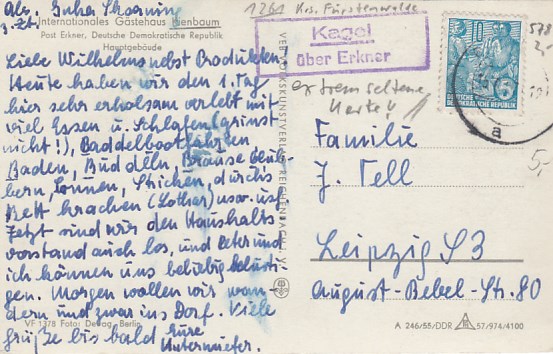 Abs. Guha
z. Zt.
Internationales Gästehaus Kienbaum
Post Erkner, Deutsche Demokratische Republik
Hauptgebäude
Liebe Wilhelms nebst Produkten.
Heute haben wir den 1. Tag
hier sehr erholsam verlebt mit
viel Essen u. Schlafen (grinst
nicht!), Paddelbootfahren
Baden, Buddeln, Brause
Sonnen, Stricken, durchs
Bett krachen (Lothar) usw. usf.
Jetzt sind wir den Haushalts-
vorstand auch los, und Peter und
ich können uns beliebig belusti-
gen. Morgen wollen wir wan-
dern und zwar ins Dorf. Viele
Grüße bis bald Eure
Untermieter.
VF 1378 Foto: Dewag, Berlin
VEB VOLKSKUNSTVERLAG REICHENBACH I. V.
1261 Krs. Fürstenwalde
Kagel
über Erkner
extrem seltene
Marke!
10
5
DEUTSCHE
DEMOKRATISCHE REPUBLIK
a
578
5,-
Familie
J. Tell
Leipzig S3
August-Bebel-Str. 80
A 246/55/DDR 57/974/4100